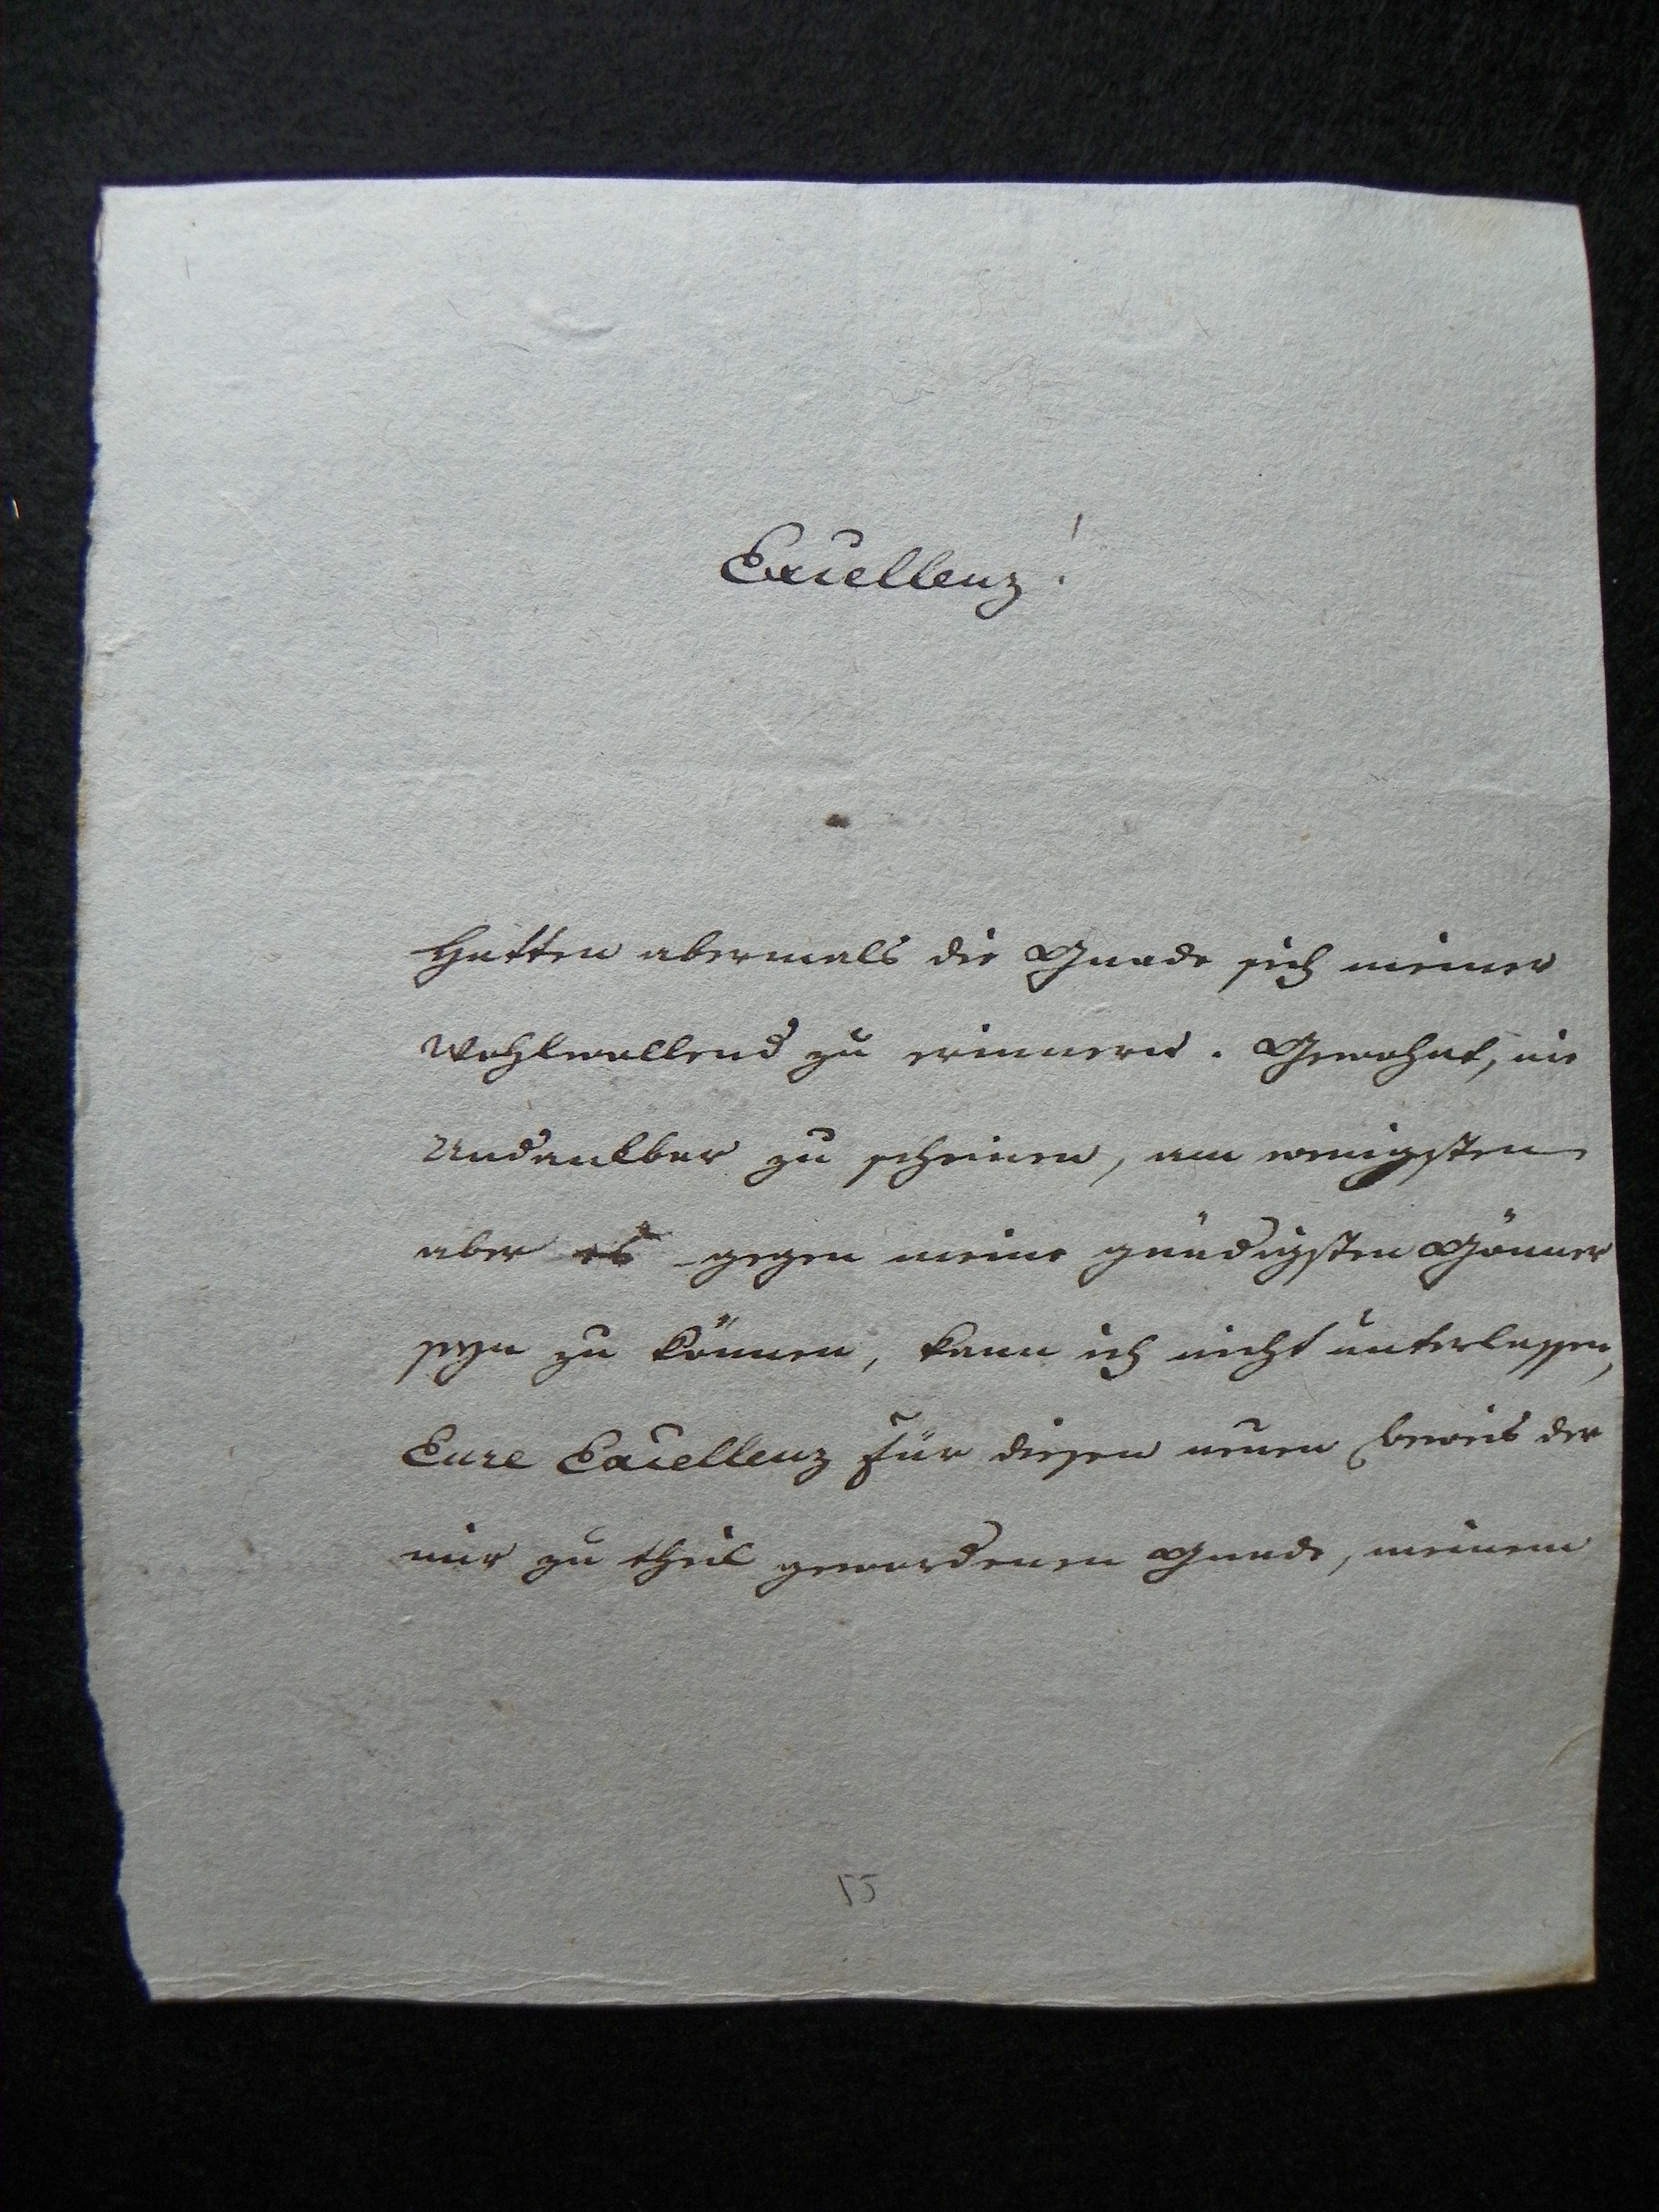 Excellenz!
Hatten abermals die Gnade sich meiner
Wohlwollend zu erinnern. Gewohnt, nie
Undankbar zu scheinen, am wenigsten
aber es gegen meine gnädigsten Gönner
seyn zu können, kann ich nicht unterlassen,
Eure Excellenz für diesen neuen Beweis der
mir zu theil gewordenen Gnade, meinen